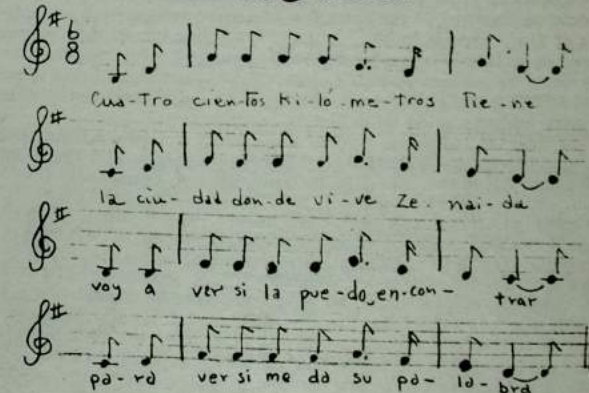 6
8
Cua-Tro cien-Tos Ki-ló-me-tros Tie-ne
la ciu-dad don-de vi-ve Ze-nai-da
voy a ver si la pue-do en-con-trar
pa-ra ver si me da su pa-la-bra